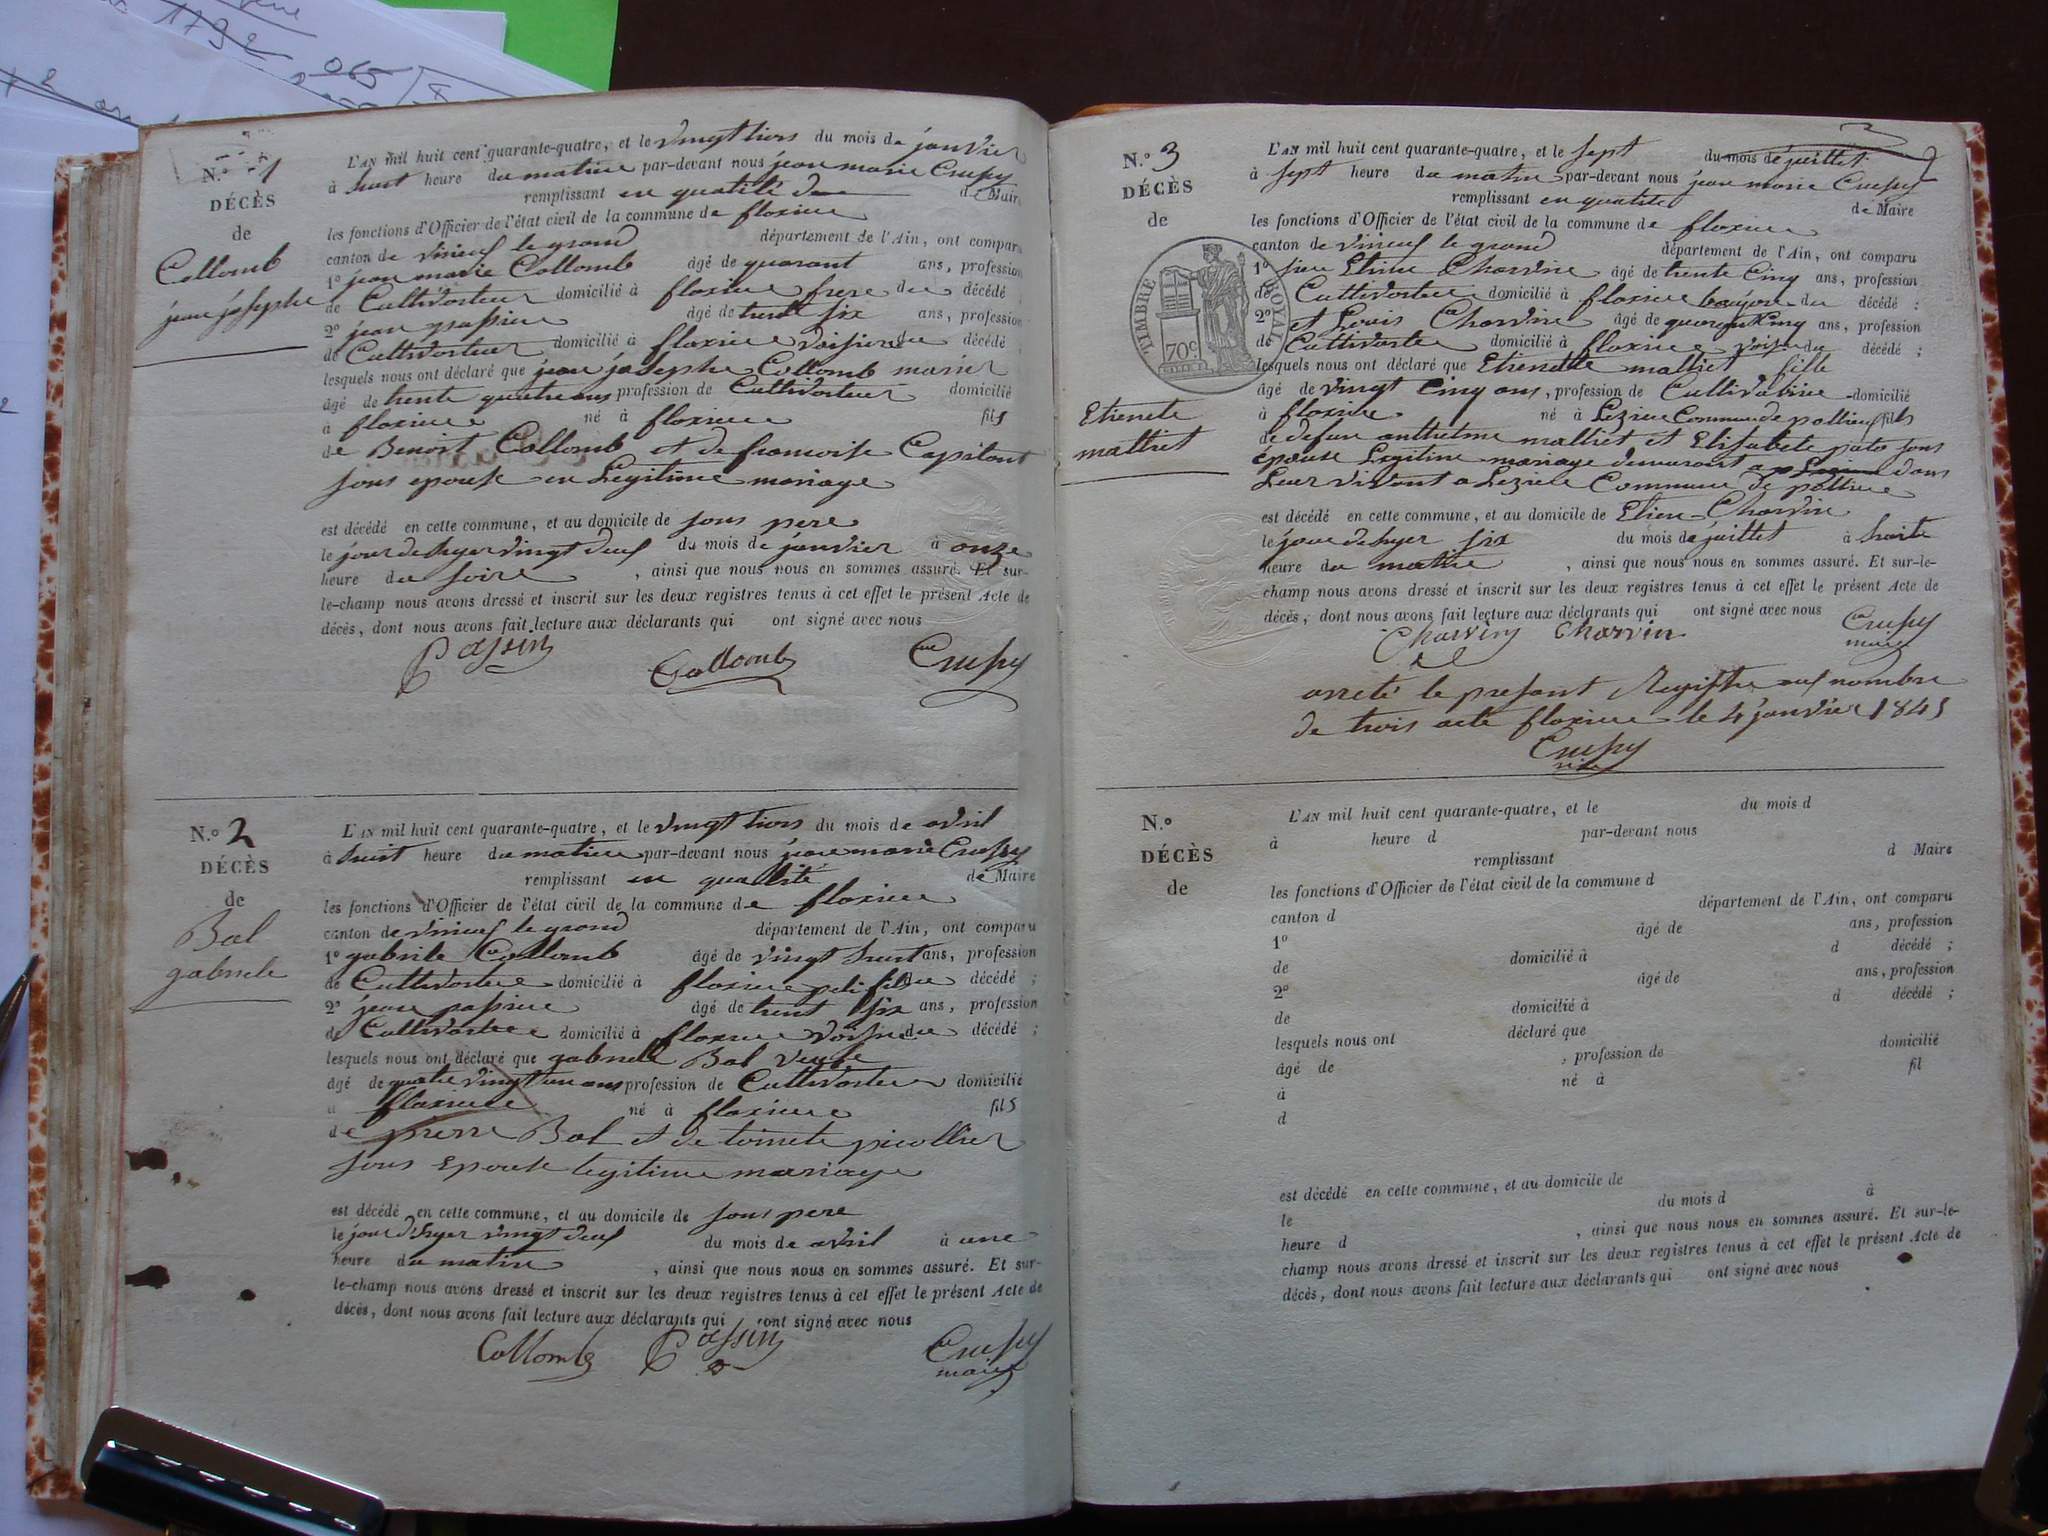 1792
065
N.º 1
DÉCÈS
de
Collomb
jean josephe
L'AN mil huit cent quarante-quatre, et le vingt trois du mois de janvier
à huit heure du matin par-devant nous jean marie Crussy
remplissant en qualité de de Maire
les fonctions d'Officier de l'état civil de la commune de floxieu
canton de virieux le grand département de l'Ain, ont comparu
1º jean marie Collomb âgé de quarant ans, profession
de Cultivateur domicilié à floxieu frere du décédé
2º jean passin âgé de trent six ans, profession
de Cultivateur domicilié à floxieu voisin du décédé
lesquels nous ont déclaré que jean josephe Collomb marier
âgé de trente quatre ans profession de Cultivateur domicilié
à floxieu né à floxieu fils
de Benoit Collomb et de francoise Capitant
sous epouse en Legitime mariage
est décédé en cette commune, et au domicile de sons pere
le jour de hyer vingt deux du mois de janvier à onze
heure du soire , ainsi que nous nous en sommes assuré. Et sur-
le-champ nous avons dressé et inscrit sur les deux registres tenus à cet effet le présent Acte de
décès, dont nous avons fait lecture aux déclarants qui ont signé avec nous
Passin Collomb Crussy
N.º 2
DÉCÈS
de
Bal
gabriele
L'AN mil huit cent quarante-quatre, et le vingt trois du mois de avril
à huit heure du matin par-devant nous jean marie Crussy
remplissant en qualité de Maire
les fonctions d'Officier de l'état civil de la commune de floxieu
canton de virieux le grand département de l'Ain, ont comparu
1º gabriele Collomb âgé de vingt huit ans, profession
de Cultivateur domicilié à floxieu peti fils du décédé ;
2º jean passin âgé de trent six ans, profession
de Cultivateur domicilié à floxieu voisin du décédé ;
lesquels nous ont déclaré que gabrielle Bal veufe
âgé de quatre vingt un ans profession de Cultivateur domicilié
à floxieu né à floxieu fils
de pierre Bal et de toinete picollier
sous Epouse legitime mariage
est décédé en cette commune, et au domicile de sons pere
le jour d'hyer vingt deux du mois de avril à une
heure du matin , ainsi que nous nous en sommes assuré. Et sur-
le-champ nous avons dressé et inscrit sur les deux registres tenus à cet effet le présent Acte de
décès, dont nous avons fait lecture aux déclarants qui ont signé avec nous
Collomb Passin Crussy
maire
N.º 3
DÉCÈS
de
TIMBRE ROYAL
70c
Etienete
malliet
L'AN mil huit cent quarante-quatre, et le sept du mois de juillet
à sept heure du matin par-devant nous jean marie Crussy
remplissant en qualité de Maire
les fonctions d'Officier de l'état civil de la commune de floxieu
canton de virieux le grand département de l'Ain, ont comparu
1º Etiene Charvin âgé de trente Cinq ans, profession
de Cultivateur domicilié à floxieu du décédé ;
2º et Louis Charvin âgé de quarant Cinq ans, profession
de Cultivateu domicilié à floxieu voisin du décédé ;
lesquels nous ont déclaré que Etienette malliet fille
âgé de vingt Cinq ans, profession de Cultivatrise domicilié
à floxieu né à Lezieu Commune de pollieu fils
de defun anthelme malliet et Elisabete pato sous
épouse Legitime mariage demeurant dans
Leur vivent a Lezieu Commune de pollieu
est décédé en cette commune, et au domicile de Etien Charvin
le jour de hyer six du mois de juillet à huite
heure du matin , ainsi que nous nous en sommes assuré. Et sur-le-
champ nous avons dressé et inscrit sur les deux registres tenus à cet effet le présent Acte de
décès, dont nous avons fait lecture aux déclarants qui ont signé avec nous
Charvin Charvin Crussy
maire
arreté le presant Registre aux nombre
de trois acte floxieu le 4 janvier 1845
Crussy
N.º
DÉCÈS
de
L'AN mil huit cent quarante-quatre, et le du mois d
à heure d par-devant nous
remplissant d Maire
les fonctions d'Officier de l'état civil de la commune d
canton d département de l'Ain, ont comparu
1º âgé de ans, profession
de domicilié à d décédé ;
2º âgé de ans, profession
de domicilié à d décédé ;
lesquels nous ont déclaré que
âgé de , profession de domicilié
à né à fil
d
est décédé en cette commune, et au domicile de
le du mois d à
heure d , ainsi que nous nous en sommes assuré. Et sur-le-
champ nous avons dressé et inscrit sur les deux registres tenus à cet effet le présent Acte de
décès, dont nous avons fait lecture aux déclarants qui ont signé avec nous